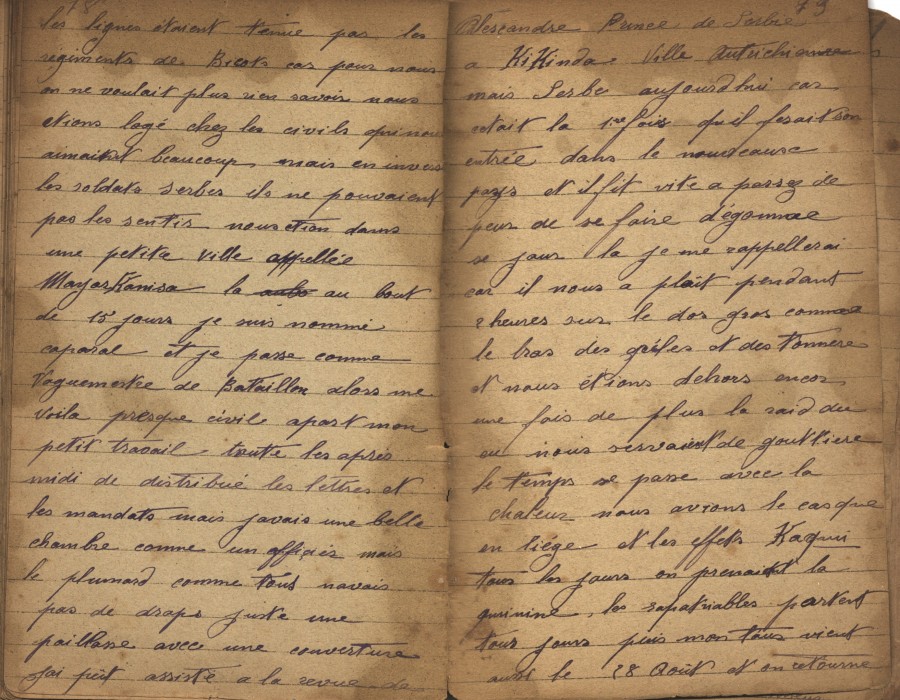 78
les lignes étaient tenue par les
régiments de Bicots car pour nous
on ne voulait plus rien savoir nous
etions logé chez les civils qui nou
aimaient beaucoup, mais en invers
les soldats serbes ils ne pouvaient
pas les sentir nous etion dans
une petite ville appellée
MayarsKanisa la au bout
de 15 jours je suis nommé
caporal et je passe comme
Vaguemestre de Bataillon alors me
voila presque civile apart mon
petit travail toute les après
midi de distribué les lettres et
les mandats mais javais une belle
chambre comme un officier mais
le plumard comme tous navais
pas de draps juste une
paillasse avec une couverture
jai put assisté a la revue de
79
Alescandre Prince de Serbie
a KiKinda Ville Autrichienne
mais Serbe aujourdhui car
cetait la 1re fois qu'il fesait son
entrée dans le nouveaux
pays et il fit vite a passez de
peur de se faire dégommé
ce jour la je me rappellerai
car il nous a plût pendant
2 heures sur le dos gros comme
le bras des grèles et des tonnère
et nous étions dehors encor
une fois de plus la raid du
cu nous servaient de gouttiere
le temps se passe avec la
chaleur nous avions le casque
en liége et les effets Kaqui
tous les jours on prenait la
quinine, les rapatriables partent
tous jours puis mon tour vient
aussi le 28 Août et on retourne